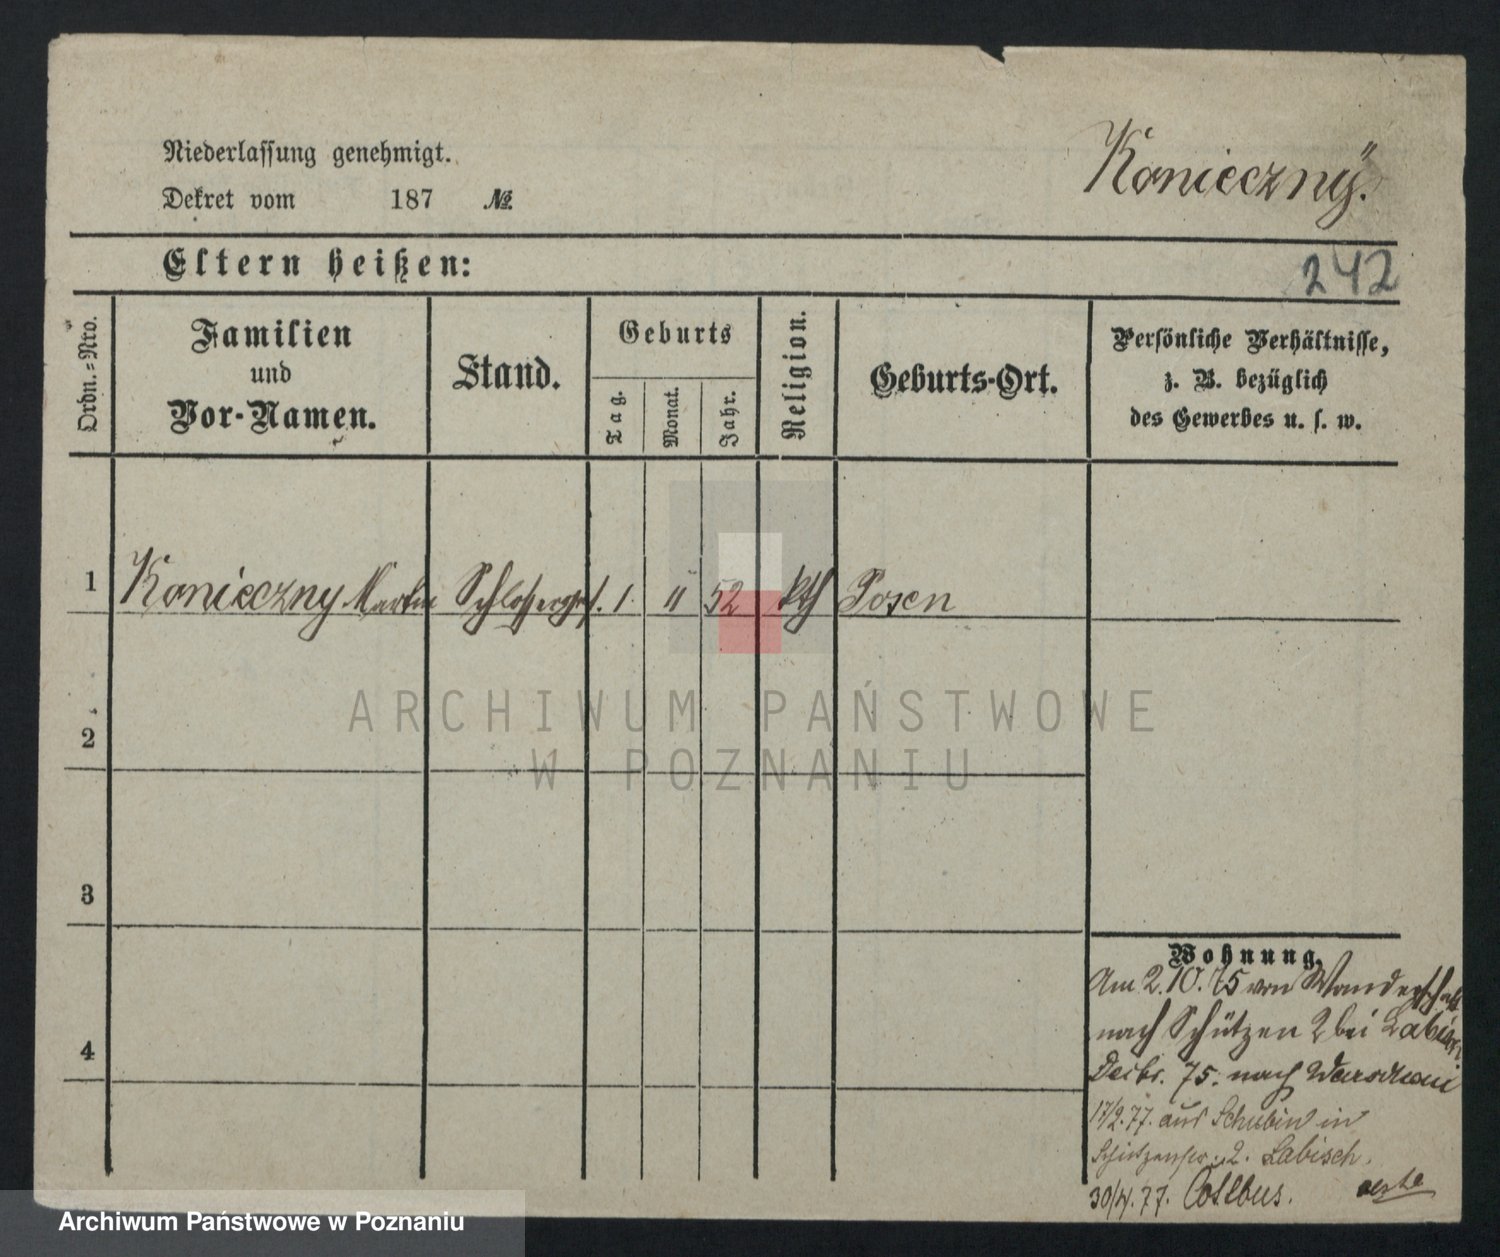 Niederlassung genehmigt.
Dekret vom 187 №
Konieczny.
Eltern heißen:
242
Ordn.-Nro.
Familien
und
Vor-Namen.
Stand.
Geburts
Tag.
Monat.
Jahr.
Religion.
Geburts-Ort.
Persönliche Verhältnisse,
z. B. bezüglich
des Gewerbes u. s. w.
1 Konieczny Martin Schlosserges. 1. 11 52 kth Posen
2
3
4
Wohnung.
Am 2.10.75 von Wanderschaft
nach Schützen 2 bei Labisch
Decbr. 75. nach
17/2.77. aus Schubin in
Schützenstr. 2. Labisch.
77. Cottbus.
ARCHIWUM PAŃSTWOWE
W POZNANIU
Archiwum Państwowe w Poznaniu